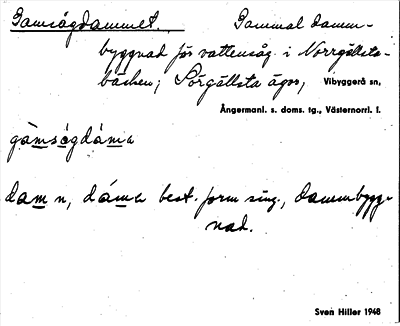 Gamsågdammet. Gammal damm-
byggnad för vattensåg i Norrgällsta-
bäcken; Sörgällsta ägor, Vibyggerå sn,
Ångermanl. s. doms. tg., Västernorrl. l.
gàmságdám̲a
dam̲ n, dám̲a best. form sing., dammbygg-
nad.
Sven Hiller 1948